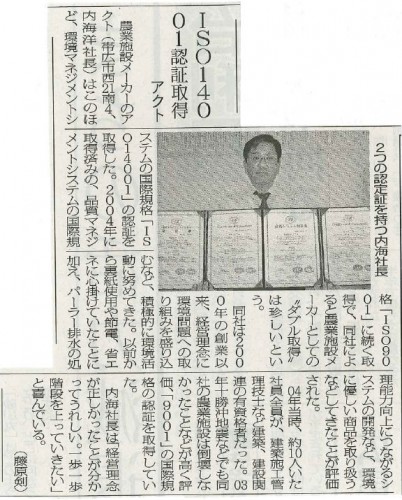 ISO140
01認証取得
アクト
農業施設メーカーのア
クト(帯広市西21南4、
内海洋社長)はこのほ
ど、環境マネジメントシ
ステムの国際規格「IS
O14001」の認証を
取得した。2004年に
取得済みの、品質マネジ
メントシステムの国際規
格「ISO90
01」に続く取
得で、同社によ
ると農業施設メ
ーカーとしての
〝ダブル取得〟
は珍しいとい
う。
同社は200
0年の創業以
来、経営理念に
環境問題への取
り組みを盛り込
むなど、積極的に環境活
動に努めてきた。以前か
ら裏紙使用や節電、省エ
ネに心掛けていたことに
加え、パーラー排水の処
理能力向上につながるシ
ステムの開発など、環境
に優しい商品を取り扱う
などしてきたことが評価
された。
04年当時、約10人いた
社員全員が、建築施工管
理技士など建築、建設関
連の有資格者だった。03
年十勝沖地震などでも同
社の農業施設は倒壊しな
かったことなどが高く評
価、「9001」の国際規
格の認証を取得してい
る。
内海社長は「経営理念
が正しかったことが分か
ってうれしい。一歩一歩
階段を上っていきたい」
と喜んでいる。
(藤原剣)
2つの認定証を持つ内海社長